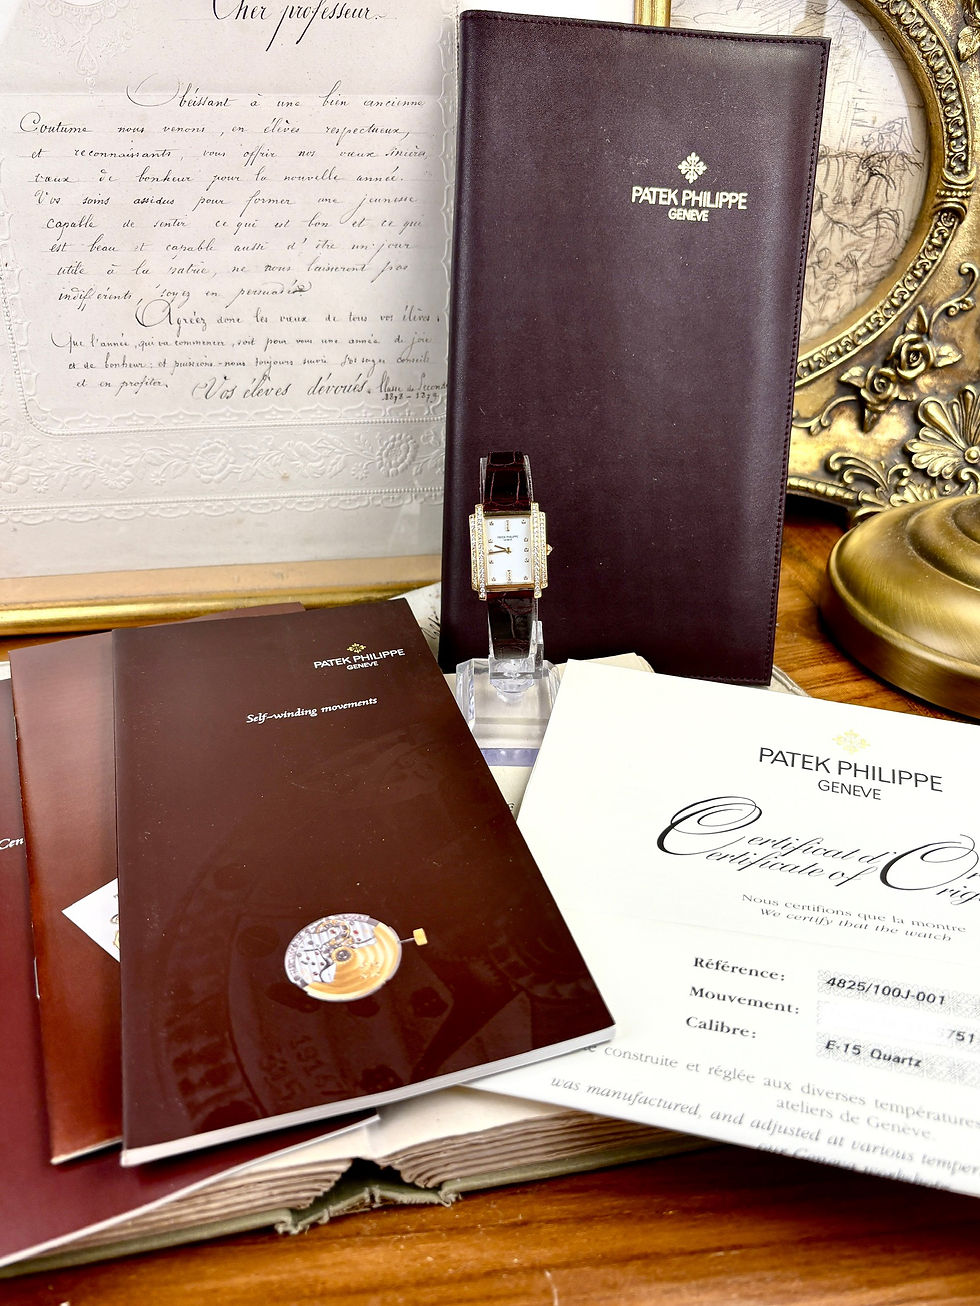 Cher professeur.
Obéissant à une bien ancienne
Coutume nous venons, en élèves respectueux,
et reconnaissants, vous offrir nos vœux
vœux de bonheur pour la nouvelle année.
Vos soins assidus pour former une jeunesse
capable de sentir ce qui est bon et ce que
est beau et capable aussi d'être un jour
utile à la patrie, ne nous laisseront pas
indifférents, soyez en persuadés.
Agréez donc les vœux de tous vos élèves.
Que l'année, qui va commencer, soit pour vous une année de joie
et de bonheur; et puissions-nous toujours suivre vos sages conseils
et en profiter.
Vos élèves dévoués.
Classe de Seconde
1878-1879
PATEK PHILIPPE
GENEVE
PATEK PHILIPPE
GENEVE
PATEK PHILIPPE
GENEVE
Self-winding movements
Cen
PATEK PHILIPPE
GENEVE
Certificat d'Or
Certificate of Orig
Nous certifions que la montre
We certify that the watch
Référence: 4825/100J-001
Mouvement: 751
Calibre: E-15 Quartz
construite et réglée aux diverses températures
ateliers de Genève.
was manufactured, and adjusted at various temper
our Geneva